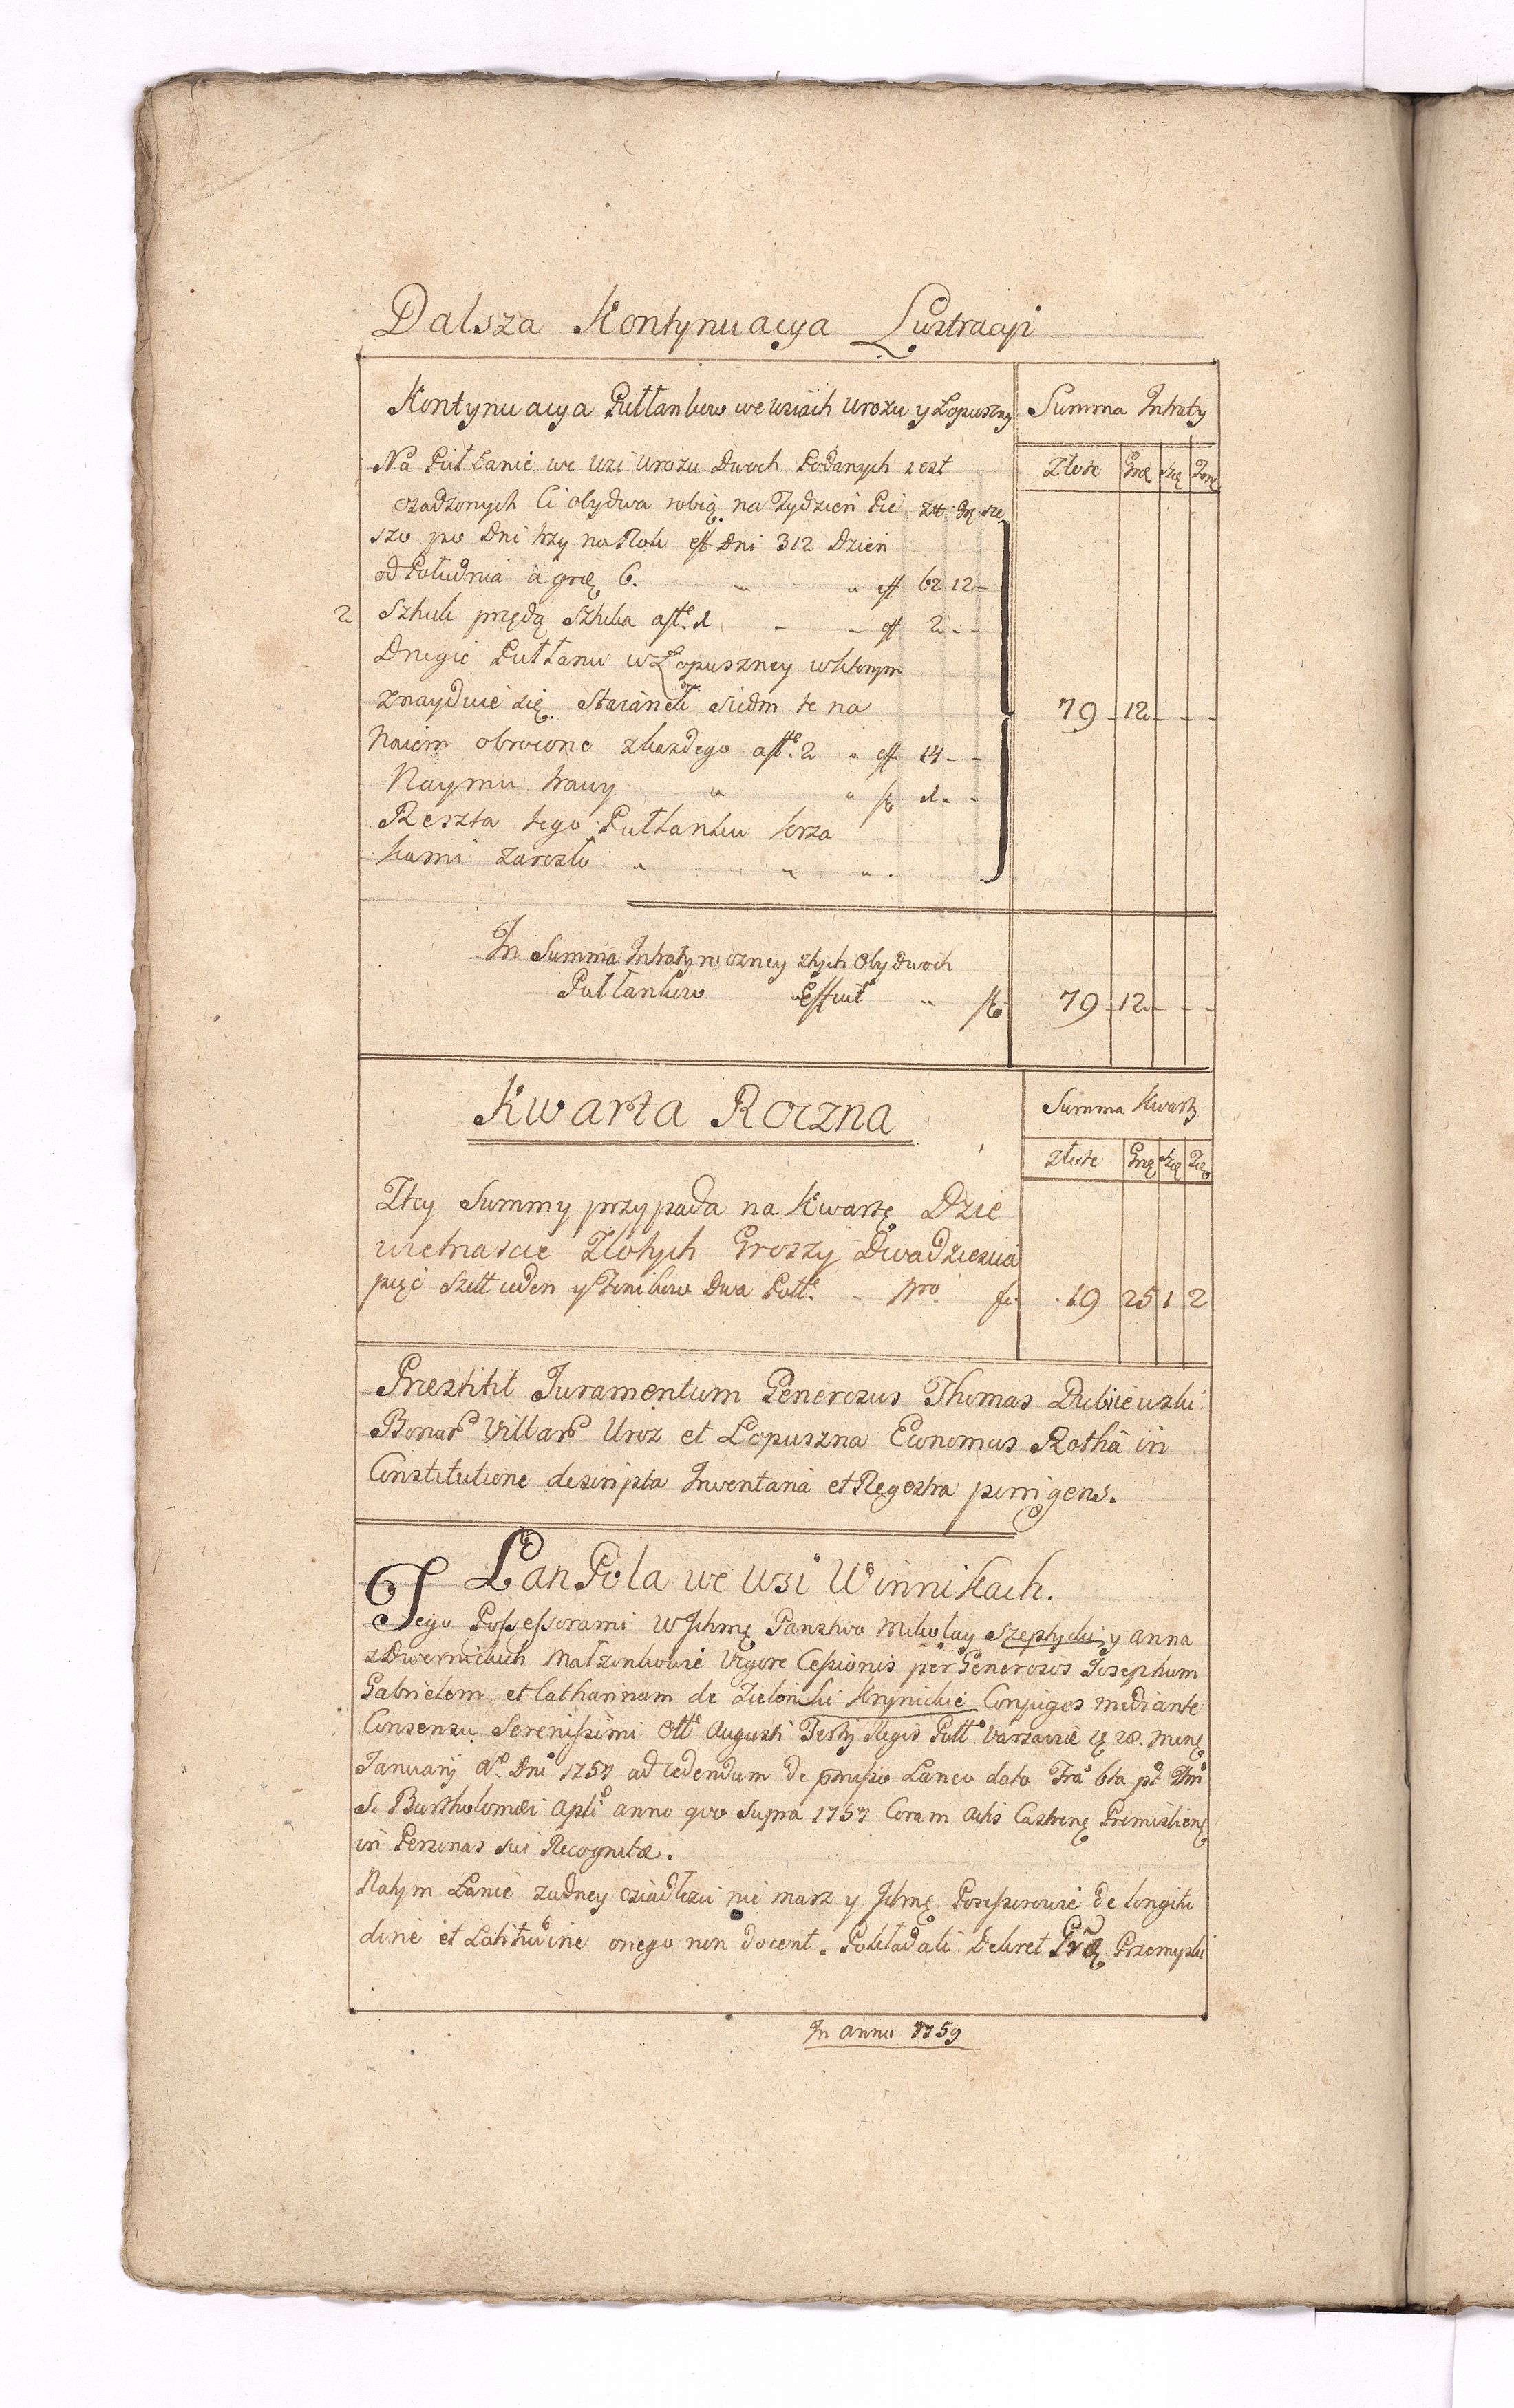 Dalsza Kontynuacya Lustracyi
Kontynuacya Pułłankow we wsiach Urożu y Łopuszny Summa Intraty
Na Pułłanie we wsi Urożu Dwoch Podanych iest Złote Gro Sze Den
osadzonych Ci obydwa robią na Tydzień Pie Zł Gr Sze
szo po Dni trzy na Rok eff Dni 312 Dzień
od Południa a gro 6. " " eff 62 12 -
2 Sztuk przędą Sztuka a fl. 1 - - eff 2 - -
Drugie Pułłanu w Łopuszney wktorym
znayduie się Staianek siedm te na 79 - 12 - - -
Naiem obrocone zkazdego a fl. 2 " eff 14 - -
Naymu trawy " " fl 1 - -
Reszta tego Pułłanku krza
kami zarosło " " " .
In Summa Intraty roczney ztych obydwoch
Pułłankow Efficit " fl 79 - 12 - - -
Kwarta Roczna Summa Kwarty
Złote Gro Sze Den
Ztey Summy przypada na Kwartę Dzie
więtnascie Złotych Groszy Dwadziescia
pięć Szell ieden y Denikow Dwa Poll. - Nro. fl. 19 25 1 2
Præstitit Juramentum Generosus Thomas Dubiewski
Bonor Villar Uroz et Lopuszna Economus Rothâ in
Constitutione descripta Inventaria et Regestra porrigens.
Łan Pola we wsi Winnikach.
Tego Possessorami W Ichmę Panstwo Mikołay Szeptycki y Anna
z Dwernickich Małzonkowie Vigore Cessionis per Generosos Josephum
Gabrielem et Catharinam de Zielinski Krynickie Conjuges mediante
Consensu Serenissimi Augusti Tertij Regis Poll Varsaviæ 28. Mene
Januarij Ao. Dni 1757 ad cedendum de præmisso Laneo dato Fria 6ta pt
S. Bartholomæi Apli anno quo supra 1757 Coram Actis Castrenę Premislienę
in Personas sui Recognitæ.
Natym Łanie zadney osiadłosci nie masz y Ichmę Possessorowie de longitu
dine et Latitudine onego non docent. Pokładali Dekret Przemyski
In anno 1759